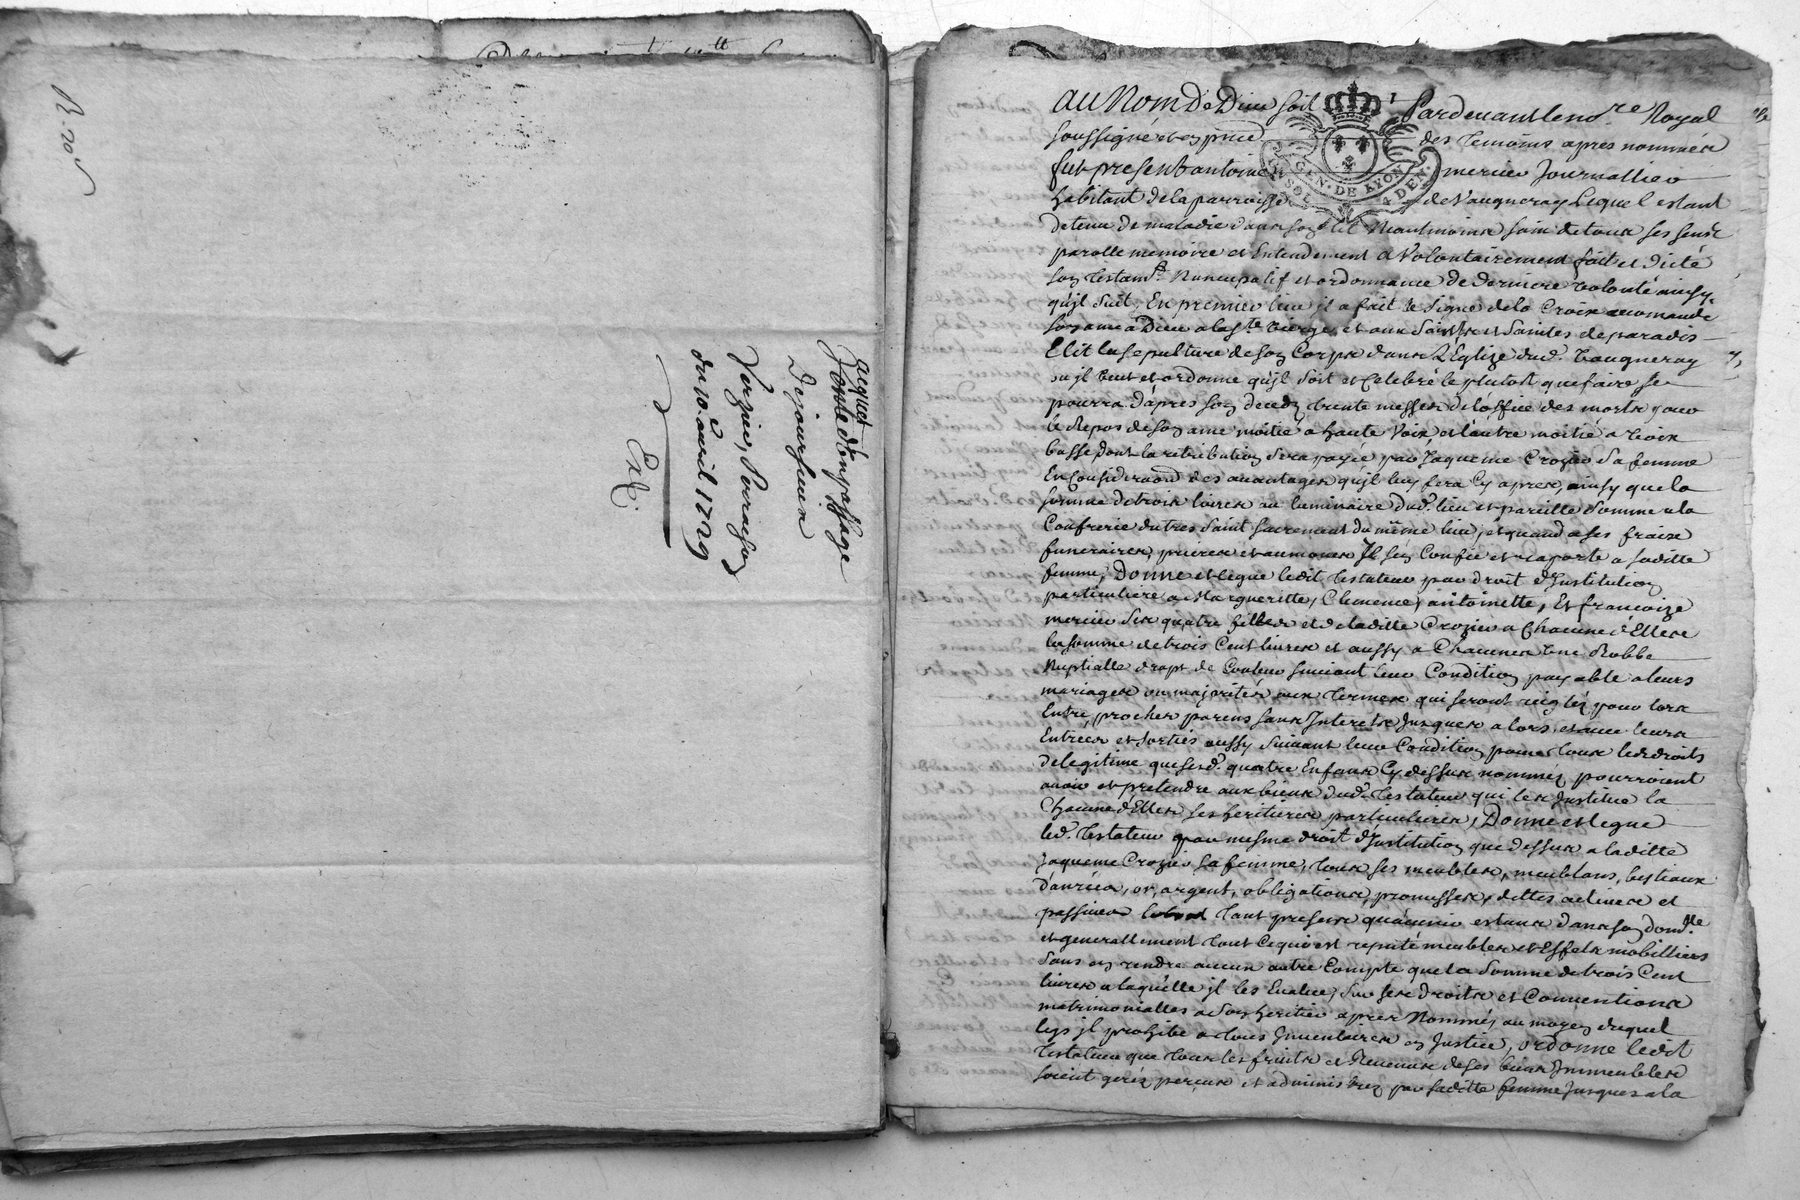 R. no^l
acquet
Dejourfieux
Verzier, Perrachon
du 10.e avril 1729
Ex.
au Nom De Dieu soit Pardevant le no.re Royal
soussigné et en pnce des temoins apres nommés
fut present antoine mercier Journallier
GEN. DE LYON
habitant de la parroisse de Vaugneray Lequel estant
detenu de maladie dans son lit Neantmoins sain de tous ses sens
parolle memoire et Entendement a Volontairement fait et dicté
son testam.t Nuncupatif et ordonnance de derniere volonté ainsy
qu'jl suit, En premier lieu jl a fait le signe de la Croix recomandé
son ame a Dieu a la s.te vierge, et aux Saints et Saintes de paradis
Elit la sepulture de son Corps dans L'Eglize dud. Vaugneray
ou jl veut et ordonne qu'jl soit et Celebré le plutost que faire se
pourra d'apres son deceds trente messes de l'office des morts pour
le Repos de son ame moitié a haute Voix et l'autre moitié a voix
basse dont la retribution sera payée par Jaqueme Crozier sa femme
En Consideraon des avantages qu'jl luy fera Cy apres, ainsy que la
somme de trois livres au luminaire dud. lieu et pareille somme a la
Confrerie du tres Saint Sacrement du même lieu, et quand a ses fraix
funeraires, prieres et aumones Jl s'en Confie et raporte a saditte
femme, Donne et legue ledit testateur par droit d'Institution
particuliere a Margueritte, Clemence, antoinette, Et francoize
mercier ses quatre filles et de laditte Crozier a Chacune d'Elles
la somme de trois Cent livres et aussy a Chacunes Une Robbe
Nuptialle drapt de Couleur suivant leur Condition payable a leurs
mariages ou majorités aux termes qui seront reiglés pour lors
Entre proches parens sans Interets Jusques a lors, et leurs
Entrées et sorties aussy suivant leur Condition pour tous les droits
de legitime que sesd. quatre Enfans Cy dessus nommés pourroient
avoir et pretendre aux biens dud. testateur qui les Institue la
Chacune d'Elles ses heritieres particulieres, Donne et legue
led. testateur par mesme droit d'Institution que dessus a laditte
Jaqueme Crozier sa femme, tous ses meubles, meublans, bestiaux
danrées, or, argent, obligations, promesses, dettes actives et
passives tant presens qu'avenir estans dans son dom.lle
et generallement tout Ce qui est reputé meubles et Effets mobilliers
sans en rendre aucun autre Compte que la Somme de trois Cent
livres a laquelle jl les Evalue, sur ses droits et Conventions
matrimonialles a son heritier apres Nommé, au moyen dequel
legs jl prohibe a tous Inventaires en Justice, ordonne ledit
testateur que tous les fruits et Revenus de ses biens Immeubles
soient gerés perçus et administrez par saditte femme Jusques a la